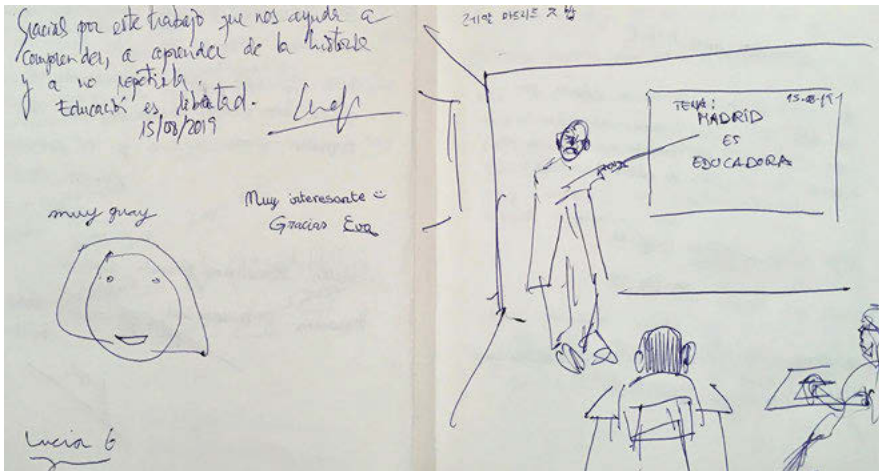 Gracias por este trabajo que nos ayuda a
comprender, a aprender de la historia
y a no repetirla.
Educación es libertad.
15/08/2019
muy guay
Muy interesante
Gracias Eva
Lucia G
TEMA: 15-08-19
MADRID
ES
EDUCADORA